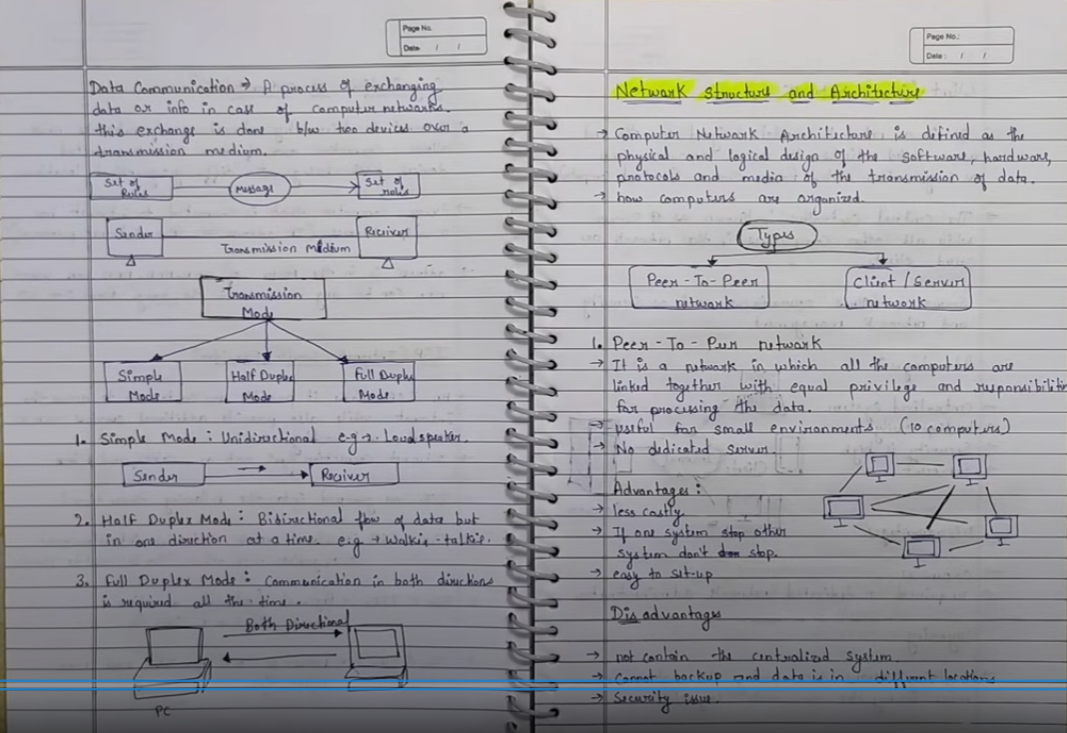 Page No.
Date / /
Data Communication → A process of exchanging
data or info in case of computer networks.
this exchange is done b/w two devices over a
transmission medium.
Set of Rules
Message
Set of rules
Sender
Transmission Medium
Receiver
Transmission Mode
Simple Mode
Half Duplex Mode
Full Duplex Mode
1. Simple Mode : Unidirectional e.g → Loud speaker.
Sender
Receiver
2. Half Duplex Mode : Bidirectional flow of data but
in one direction at a time. e.g → Walkie-talkie.
3. Full Duplex Mode : Communication in both directions
is required all the time.
Both Directional
PC
Page No.:
Date : / /
Network structure and Architecture
→ Computer Network Architecture is defined as the
physical and logical design of the software, hardware,
protocols and media of the transmission of data.
→ how computers are organized.
Types
Peer-To-Peer network
Client/Server network
1. Peer-To-Peer network
→ It is a network in which all the computers are
linked together with equal privilege and responsibilities
for processing the data.
→ useful for small environments (10 computers)
→ No dedicated server.
Advantages :
→ less costly
→ If one system stop other
system don't stop.
→ easy to set-up
Disadvantages
→ not contain the centralized system
→ Cannot backup and data is in different locations
→ Security issue.